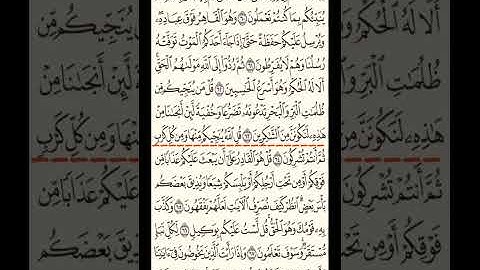 يُنَبِّئُكُم بِمَا كُنتُمْ تَعْمَلُونَ ٦٠ وَهُوَ ٱلْقَاهِرُ فَوْقَ عِبَادِهِۦ
وَيُرْسِلُ عَلَيْكُمْ حَفَظَةً حَتَّىٰٓ إِذَا جَآءَ أَحَدَكُمُ ٱلْمَوْتُ تَوَفَّتْهُ
رُسُلُنَا وَهُمْ لَا يُفَرِّطُونَ ٦١ ثُمَّ رُدُّوٓا۟ إِلَى ٱللَّهِ مَوْلَىٰهُمُ ٱلْحَقِّ
أَلَا لَهُ ٱلْحُكْمُ وَهُوَ أَسْرَعُ ٱلْحَٰسِبِينَ ٦٢ قُلْ مَن يُنَجِّيكُم مِّن
ظُلُمَٰتِ ٱلْبَرِّ وَٱلْبَحْرِ تَدْعُونَهُۥ تَضَرُّعًا وَخُفْيَةً لَّئِنْ أَنجَىٰنَا مِنْ
هَٰذِهِۦ لَنَكُونَنَّ مِنَ ٱلشَّٰكِرِينَ ٦٣ قُلِ ٱللَّهُ يُنَجِّيكُم مِّنْهَا وَمِن كُلِّ كَرْبٍ
ثُمَّ أَنتُمْ تُشْرِكُونَ ٦٤ قُلْ هُوَ ٱلْقَادِرُ عَلَىٰٓ أَن يَبْعَثَ عَلَيْكُمْ عَذَابًا مِّن
فَوْقِكُمْ أَوْ مِن تَحْتِ أَرْجُلِكُمْ أَوْ يَلْبِسَكُمْ شِيَعًا وَيُذِيقَ بَعْضَكُم
بَأْسَ بَعْضٍ ٱنظُرْ كَيْفَ نُصَرِّفُ ٱلْءَايَٰتِ لَعَلَّهُمْ يَفْقَهُونَ ٦٥ وَكَذَّبَ
بِهِۦ قَوْمُكَ وَهُوَ ٱلْحَقُّ قُل لَّسْتُ عَلَيْكُم بِوَكِيلٍ ٦٦ لِّكُلِّ نَبَإٍ
مُّسْتَقَرٌّ وَسَوْفَ تَعْلَمُونَ ٦٧ وَإِذَا رَأَيْتَ ٱلَّذِينَ يَخُوضُونَ فِىٓ ءَايَٰتِنَا